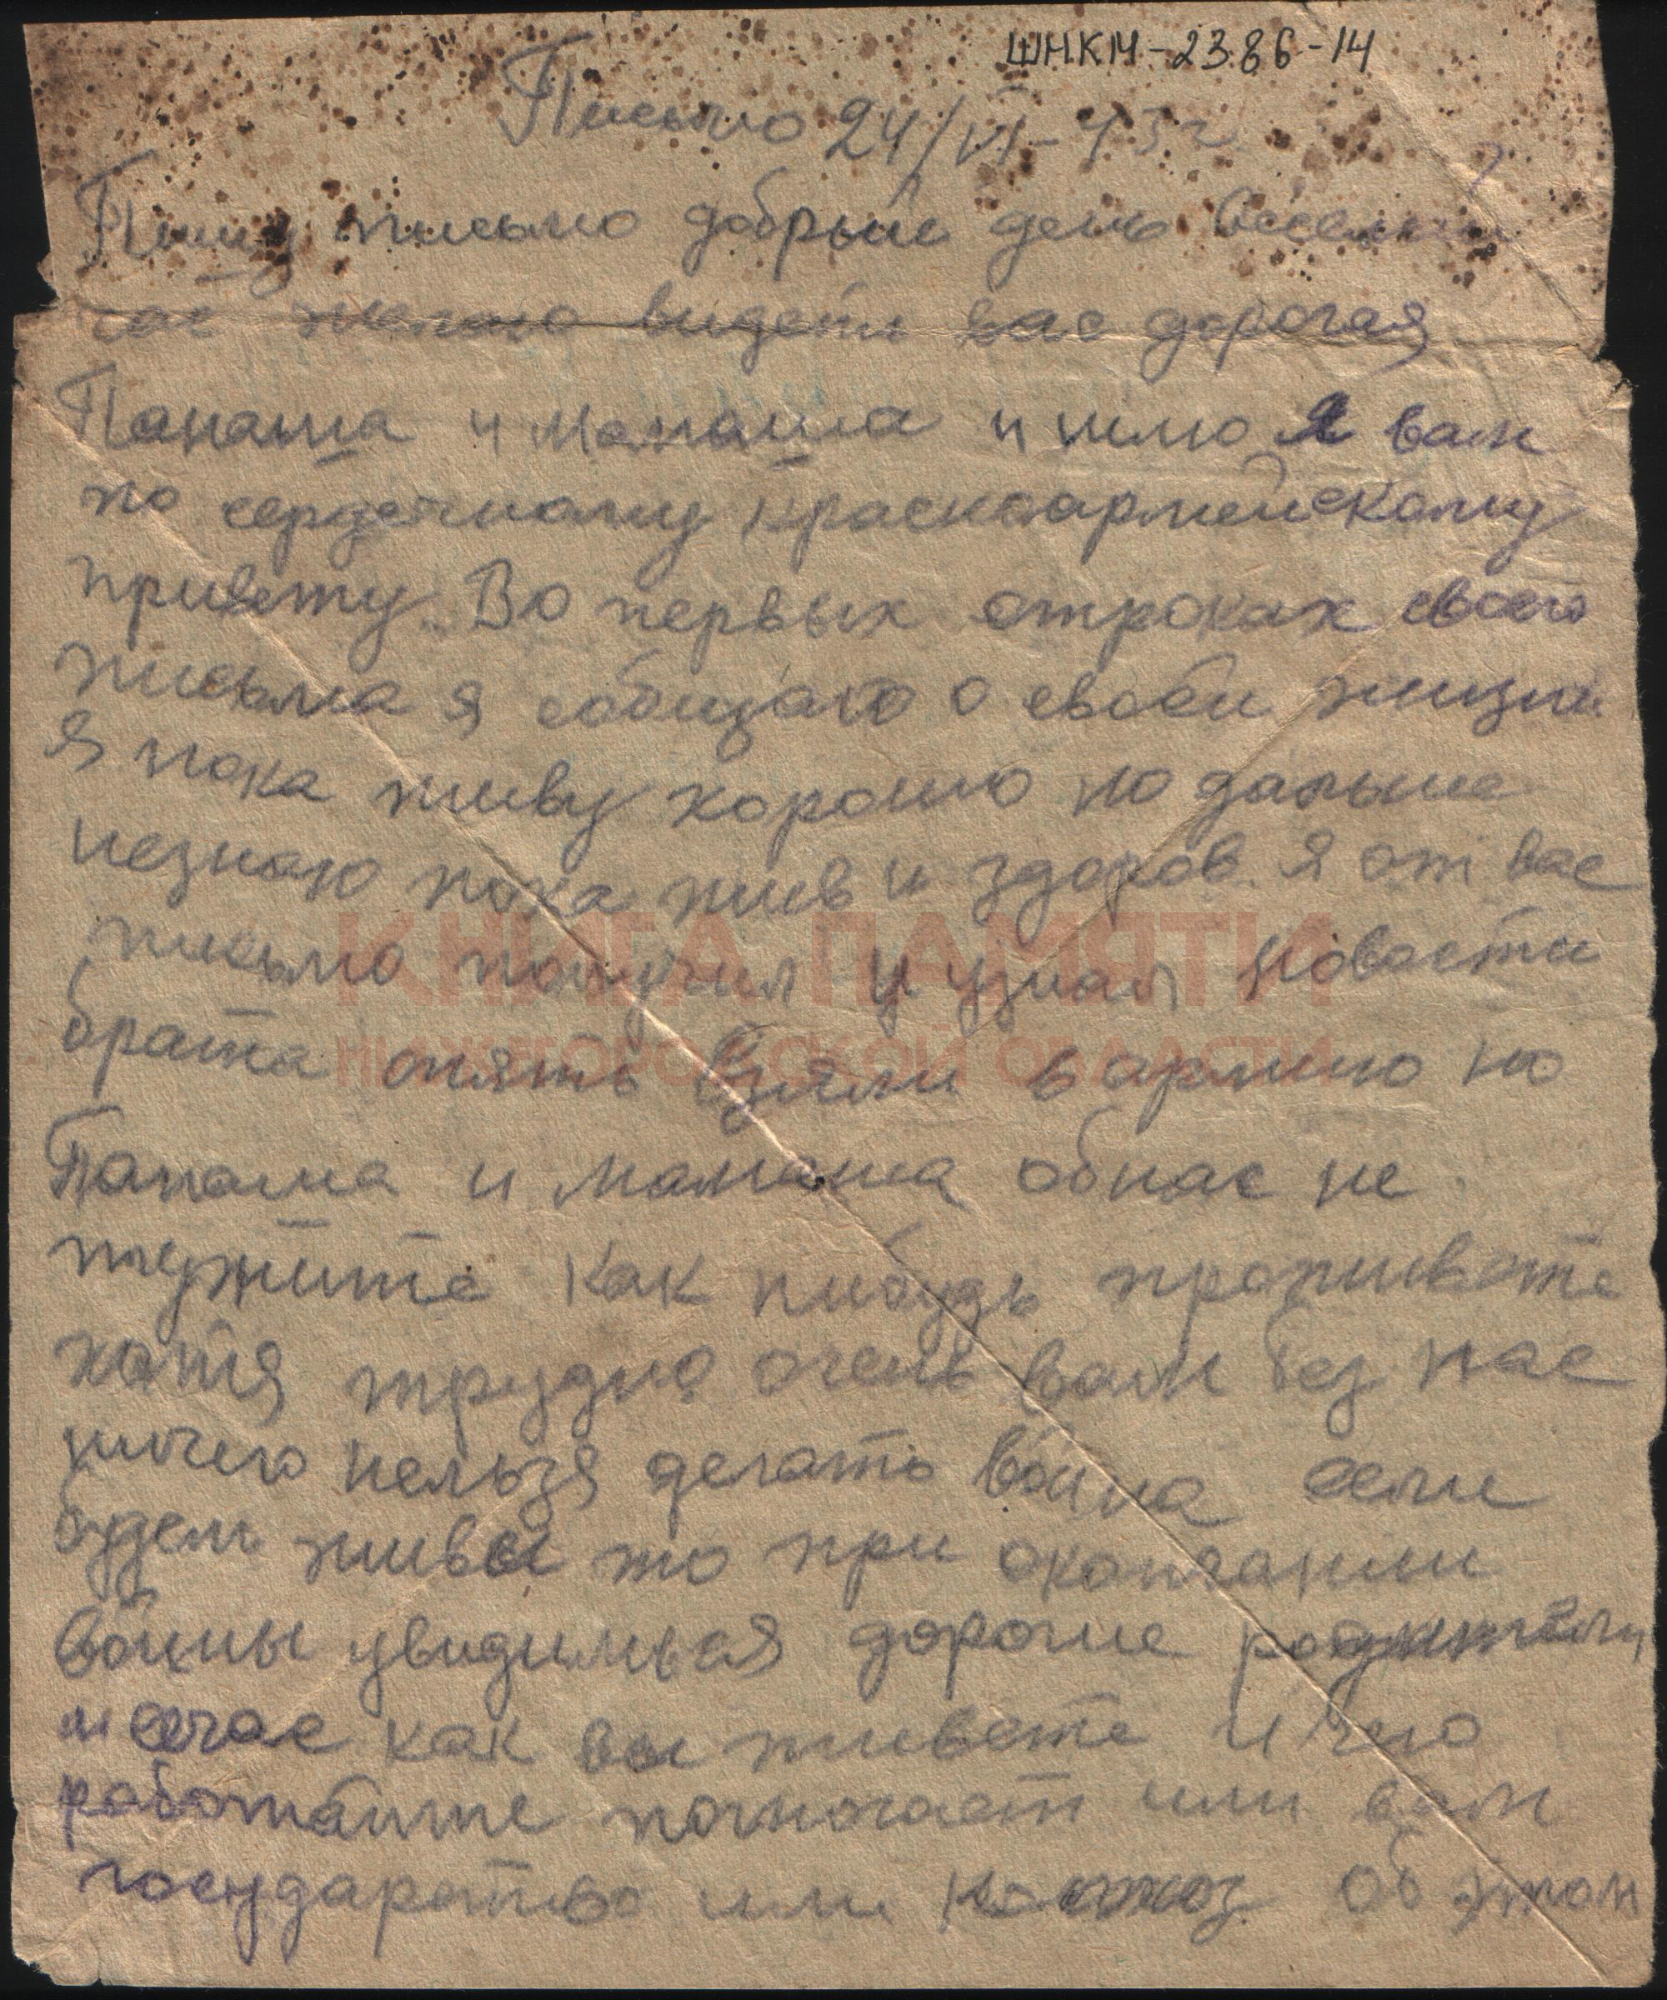 ШНКМ-2386-14
Письмо 24/VI-43г
Пишу письмо добрый день веселый
час желаю видеть вас дорогая
Панаша и Мамаша и шлю я вам
по сердечному красноармейскому
привету. Во первых строках своего
письма я собщаю о своей жизни
я пока живу хорошо но дальше
незнаю пока жив и здоров. я от вас
письмо получил и узнал новости
КНИГА ПАМЯТИ
брата опять взяли в армию но
НИЖЕГОРОДСКОЙ ОБЛАСТИ
Папаша и мамаша обнас не
тужите как нибудь проживете
хотя трудно очень вам без нас
ничего нельзя делать война если
будем живы то при окончании
войны увидимься дорогие родители
сечас как вы живете и что
работаите помогает или вам
государство или колхоз Об этом